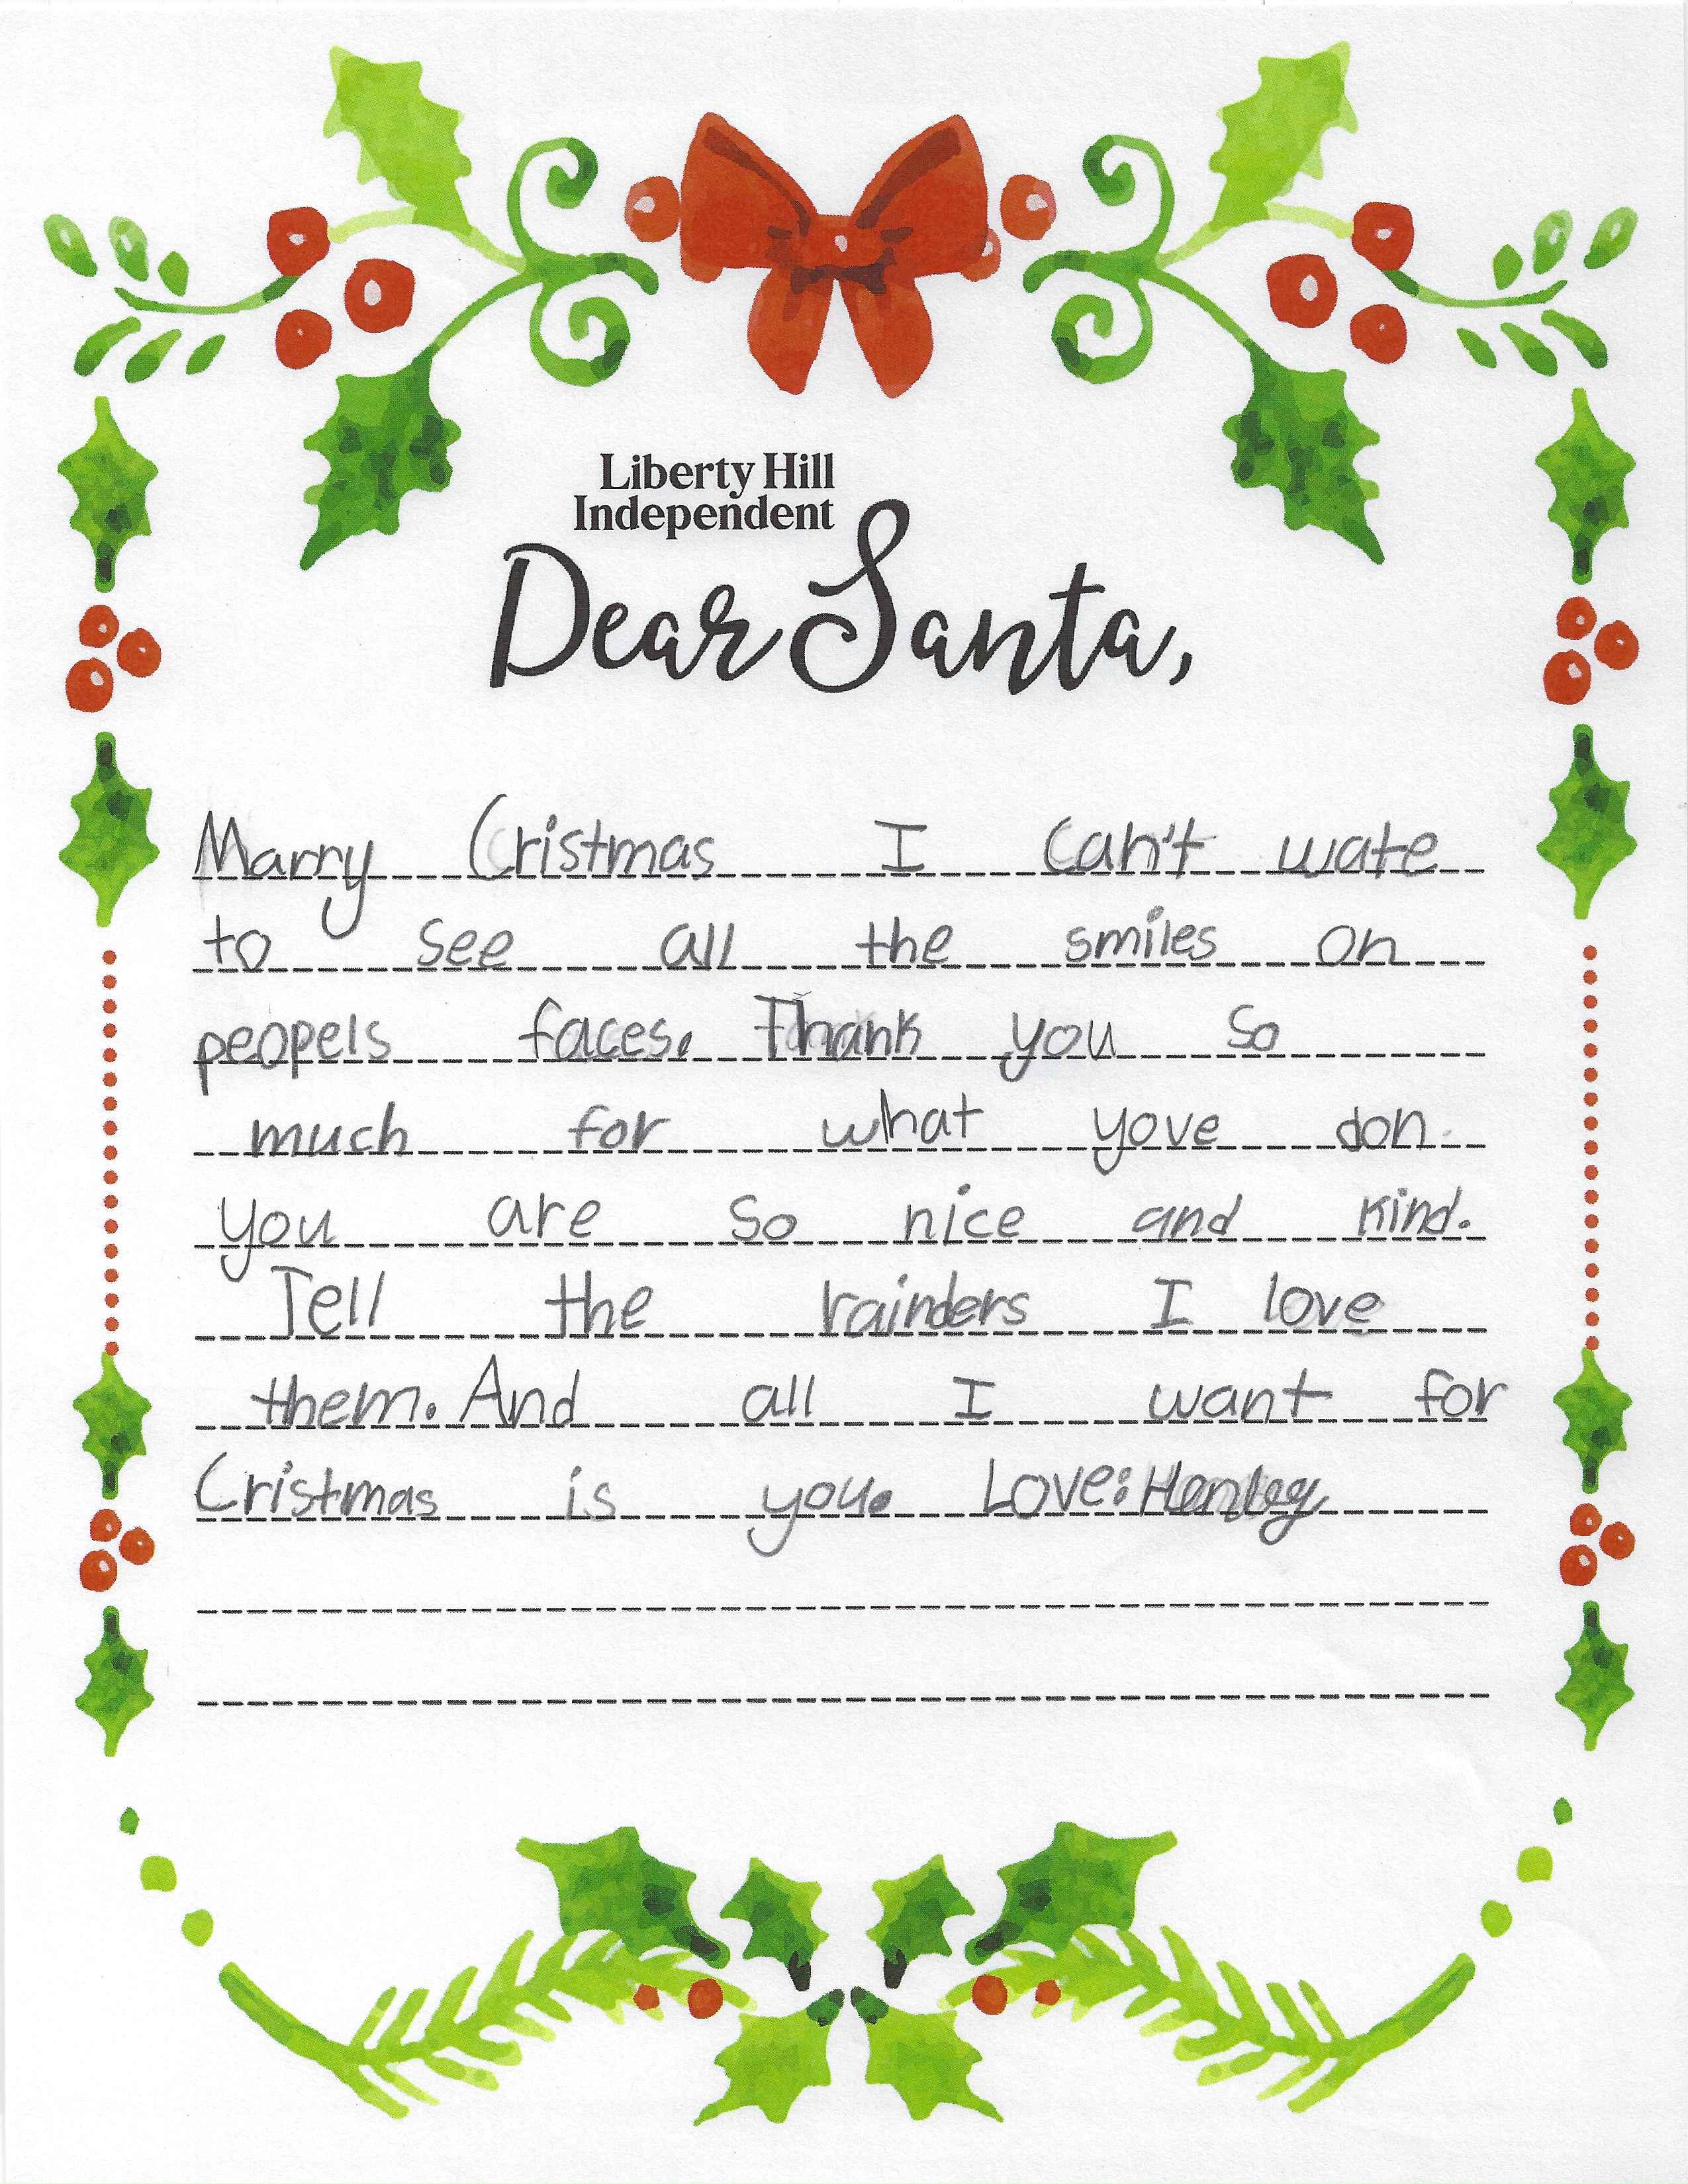 Liberty Hill
Independent
Dear Santa,
Marry Cristmas I can't wate
to see all the smiles on
peopels faces. Thank you so
much for what yove don
you are so nice and kind.
Tell the rainders I love
them. And all I want for
Cristmas is you. Love: Henley